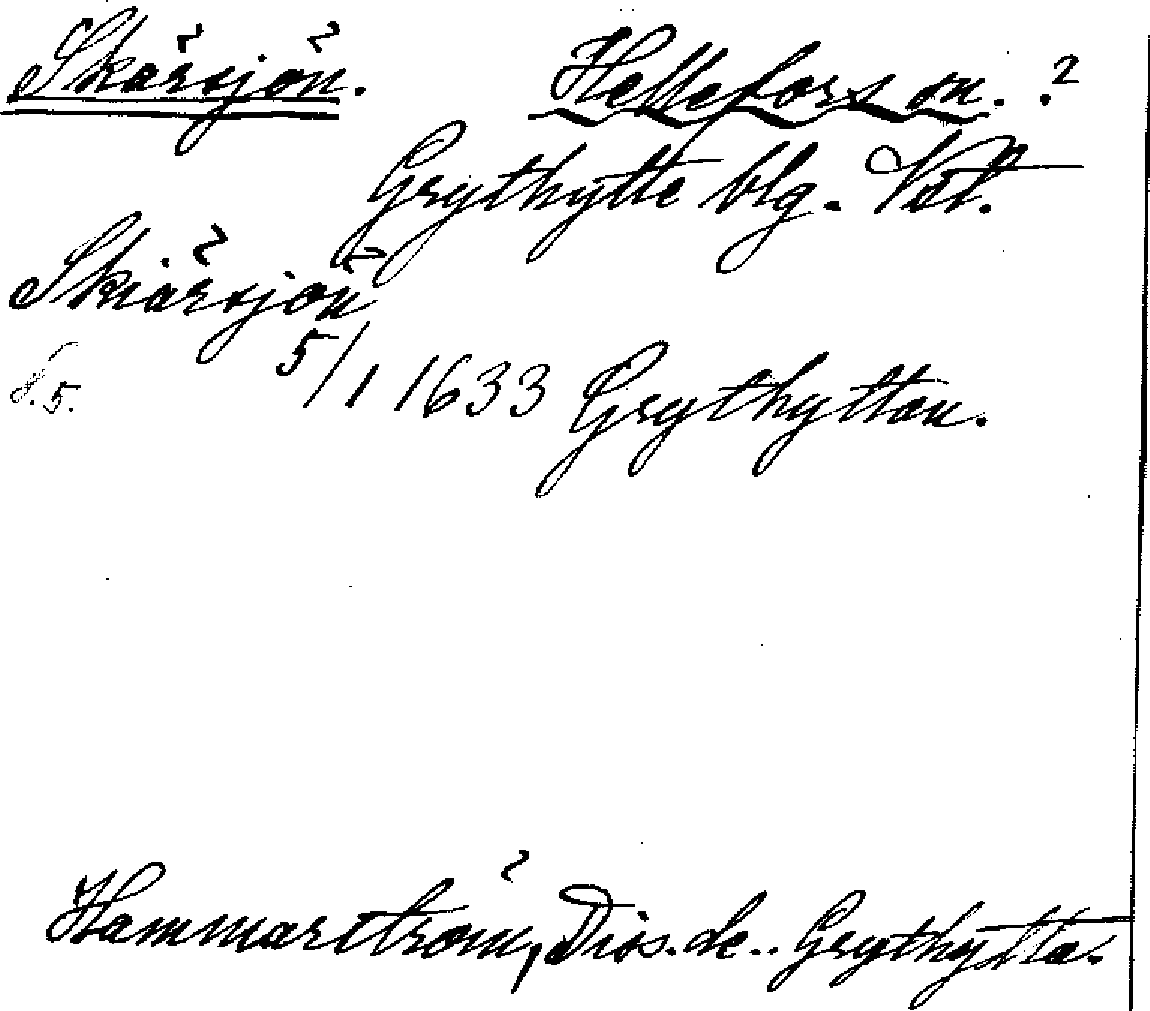 Skärsjön. Hellefors sn. ?
Grythytte blg. Vstl.
Skiärsjön
d. 5. 5/1 1633 Grythyttan.
Hammarström, Dis. de.. Grythytta.